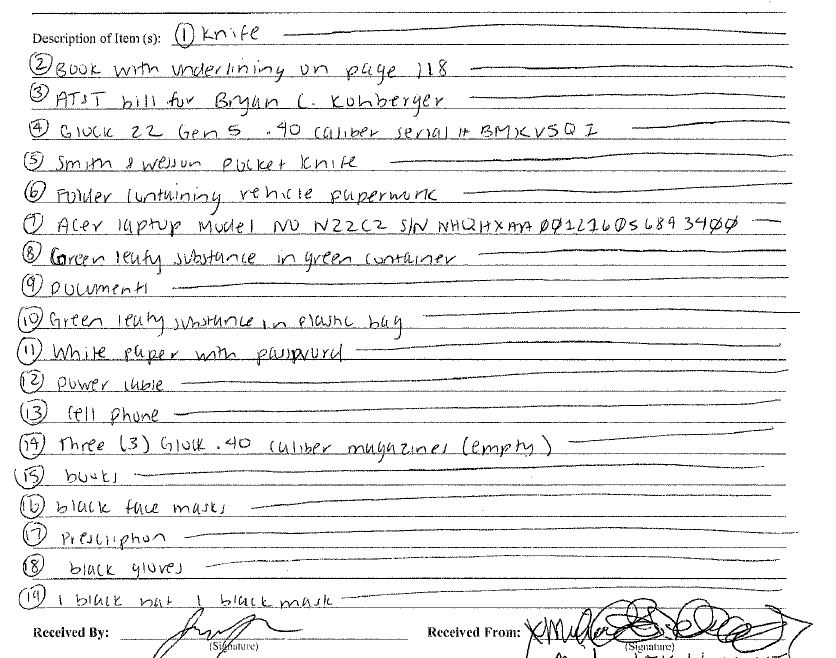 Description of Item (s): ① Knife
② Book with underlining on page 118
③ AT&T bill for Bryan C. Kohberger
④ Glock 22 Gen 5 .40 caliber serial # BMKV5Q1
⑤ Smith & Wesson pocket knife
⑥ Folder containing vehicle paperwork
⑦ Acer laptop Model NO N22C2 S/N
⑧ Green leafy substance in green container
⑨ Documents
⑩ Green leafy substance in plastic bag
⑪ White paper with password
⑫ power cable
⑬ cell phone
⑭ Three (3) Glock .40 caliber magazines (empty)
⑮ books
⑯ black face masks
⑰ Prescription
⑱ black gloves
⑲ 1 black hat 1 black mask
Received By: Received From:
(Signature) (Signature)